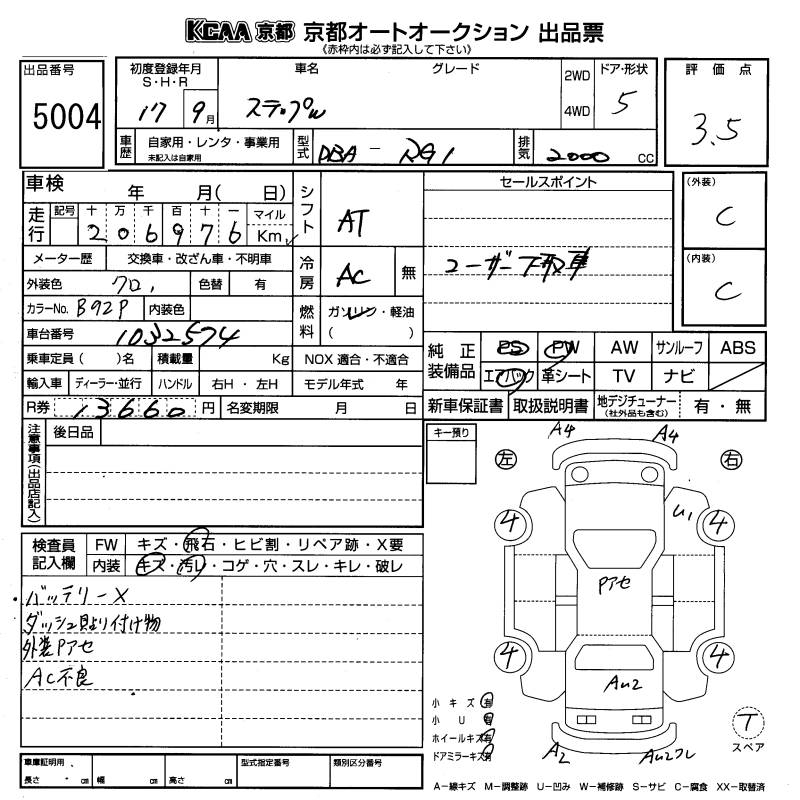 KCAA 京都 京都オートオークション 出品票
《赤枠内は必ず記入して下さい》
出品番号
5004
初度登録年月
S・H・R
17 9月
車名
グレード
ステップW
2WD
4WD
ドア・形状
5
評価点
3.5
車歴
自家用・レンタ・事業用
未記入は自家用
型式
DBA - RG1
排気
2000 CC
車検 年 月( 日)
走行
記号 十 万 千 百 十 一 マイル
2 0 6 9 7 6 Km
シフト
AT
メーター歴 交換車・改ざん車・不明車
冷房
AC
無
外装色 クロ, 色替 有
カラーNo. B92P 内装色
燃料
ガソリン・軽油
( )
車台番号 1032574
乗車定員( )名 積載量 Kg NOX 適合・不適合
輸入車 ディーラー・並行 ハンドル 右H・左H モデル年式 年
R券 13660 円 名変期限 月 日
セールスポイント
ユーザー下取車
(外装)
C
(内装)
C
純正装備品
PS PW AW サンルーフ ABS
エアバック 革シート TV ナビ
新車保証書 取扱説明書 地デジチューナー(社外品も含む) 有・無
注意事項(出品店記入)
後日品
キー預り
検査員記入欄
FW キズ・飛石・ヒビ割・リペア跡・X要
内装 キズ・汚れ・コゲ・穴・スレ・キレ・破レ
・バッテリーX
ダッシュ貼り付け物
外装Pアセ
AC不良
左
右
A4
A4
U1
4
4
Pアセ
4
4
AU2
A2
AU2フレ
小キズ 有
小U 有
ホイールキズ 有
ドアミラーキズ 有
T
スペア
車庫証明用、
長さ ・ cm 幅 cm 高さ cm
型式指定番号
類別区分番号
A−線キズ M−調整跡 U−凹み W−補修跡 S−サビ C−腐食 XX−取替済